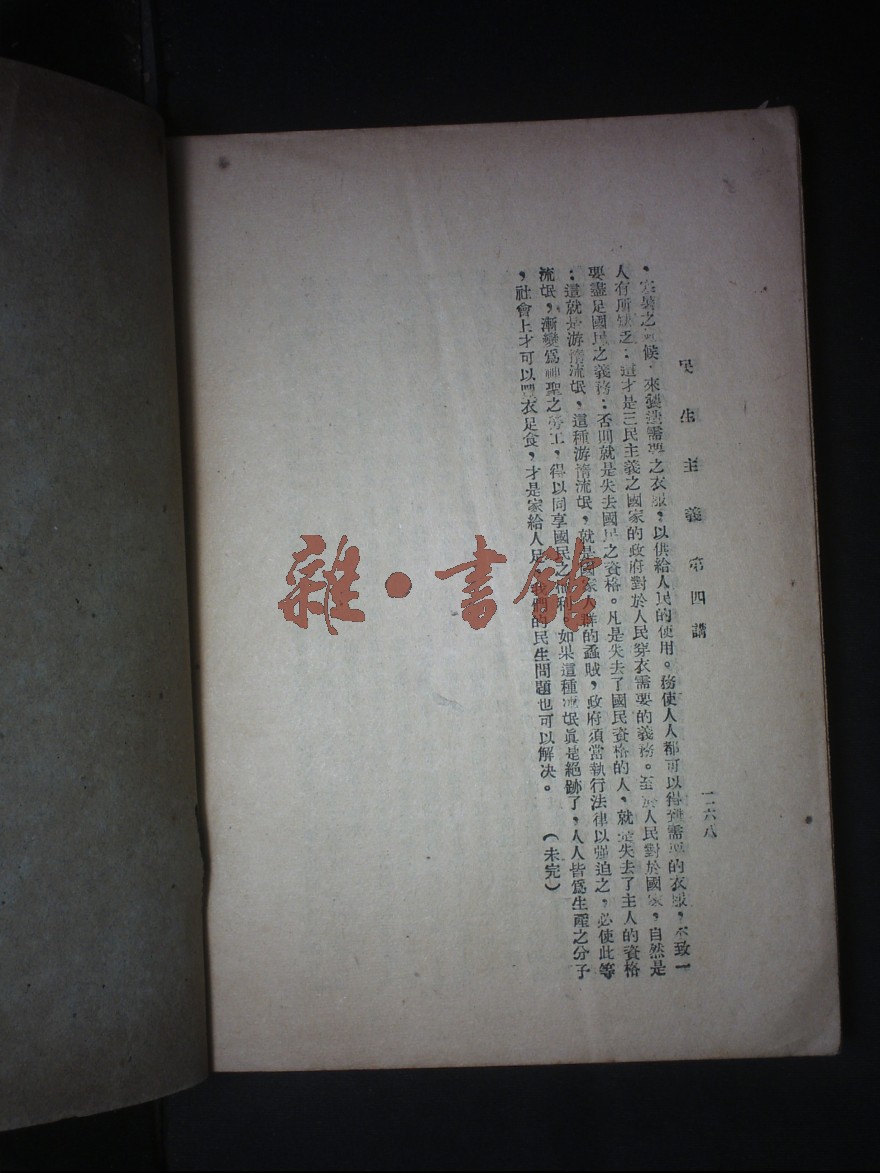 民生主義第四講
一六八
，寒暑之 候，來製造需要之衣服，以供給人民的使用。務使人人都可以得到需要的衣服，不致一
人有所缺乏；這才是三民主義之國家的政府對於人民穿衣需要的義務。至於人民對於國家，自然是
要盡足國民之義務；否則就是失去國民之資格。凡是失去了國民資格的人，就是失去了主人的資格
；這就是游惰流氓，這種游惰流氓，就是國家人群的蟊賊，政府須當執行法律以强迫之，必使此等
流氓，漸變爲神聖之勞工，得以同享國民之權利。如果這種流氓眞是絕跡了，人人皆爲生產之分子
，社會上才可以豐衣足食，才是家給人足，我們的民生問題也可以解决。（未完）
雜·書館